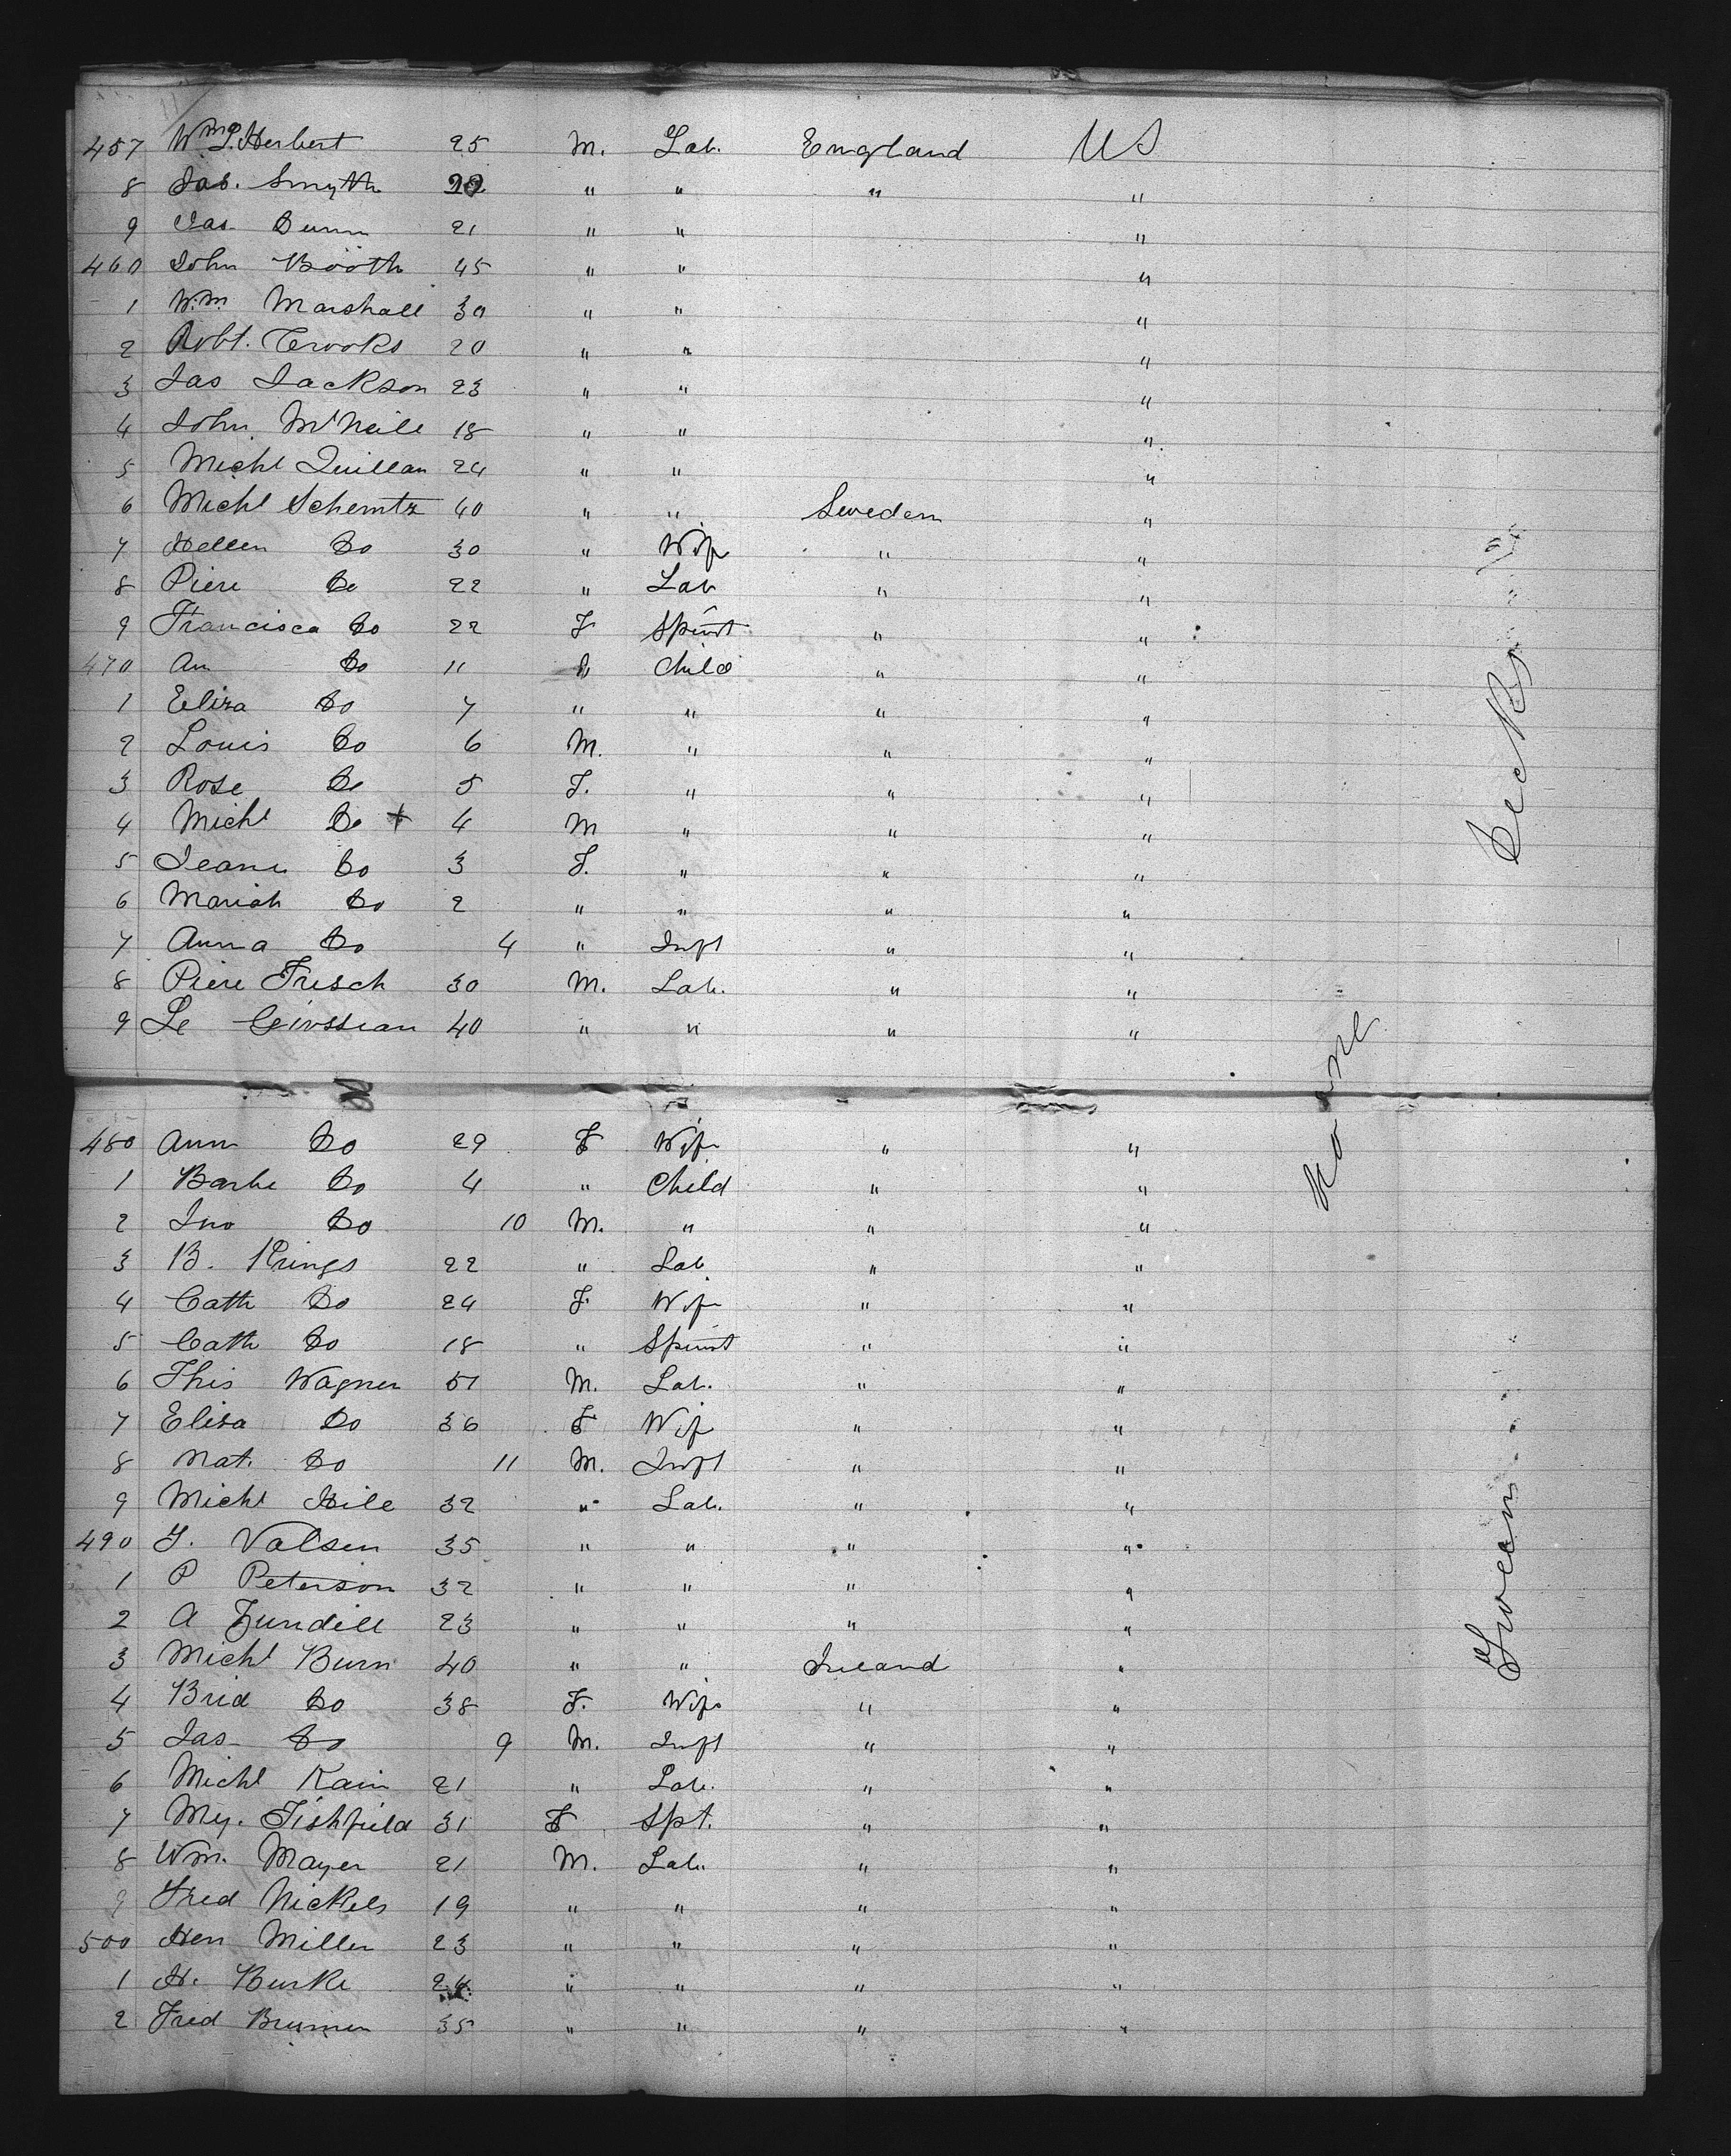 457 Wm J. Herbert 25 M. Lab. England US
8 Jas. Smyth " " " "
9 Jas Dunn 21 " " "
460 John Booth 45 " " "
1 Wm. Marshall 30 " " "
2 Robt. Crooks 20 " " "
3 Jas Jackson 23 " " "
4 John McNeill 18 " " "
5 Michl Quillan 24 " " "
6 Michl Schemtz 40 " " Sweden "
7 Hellen Do 30 " Wife " "
8 Piere Do 22 " Lab " "
9 Francisca Do 22 F Spinst " "
470 An Do 11 " Child " "
1 Eliza Do 7 " " " "
2 Louis Do 6 M. " " "
3 Rose Do 5 F. " " "
4 Michl Do + 4 M " " "
5 Jeane Do 3 F. " " "
6 Mariah Do 2 " " " "
7 Anna Do 4 " Inft " "
8 Piere Frisch 30 M. Lab. " "
9 Le 40 " " " "
480 Ann Do 29 F Wife " "
1 Barbe Do 4 " Child " "
2 Jno Do 10 M. " " "
3 B. Krings 22 " Lab " "
4 Cath Do 24 F. Wife " "
5 Cath Do 18 " Spinst " "
6 Ths Wagner 51 M. Lab. " "
7 Elisa Do 36 F Wife " "
8 Nat. Do 11 M. Inft " "
9 Michl Hill 32 " Lab. " "
490 J. Valsen 35 " " " "
1 P Peterson 32 " " " "
2 A Zundell 23 " " " "
3 Michl Burn 40 " " Ireland "
4 Brid Do 38 F. Wife " "
5 Jas Do 9 M. Inft " "
6 Michl Kain 21 " Lab. " "
7 My. Fishfield 31 F Spt. " "
8 Wm. Mayer 21 M. Lab. " "
9 Fred Nickels 19 " " " "
500 Hen Miller 23 " " " "
1 H. Burke 24 " " " "
2 Fred Brumen 35 " " " "
None
Decks